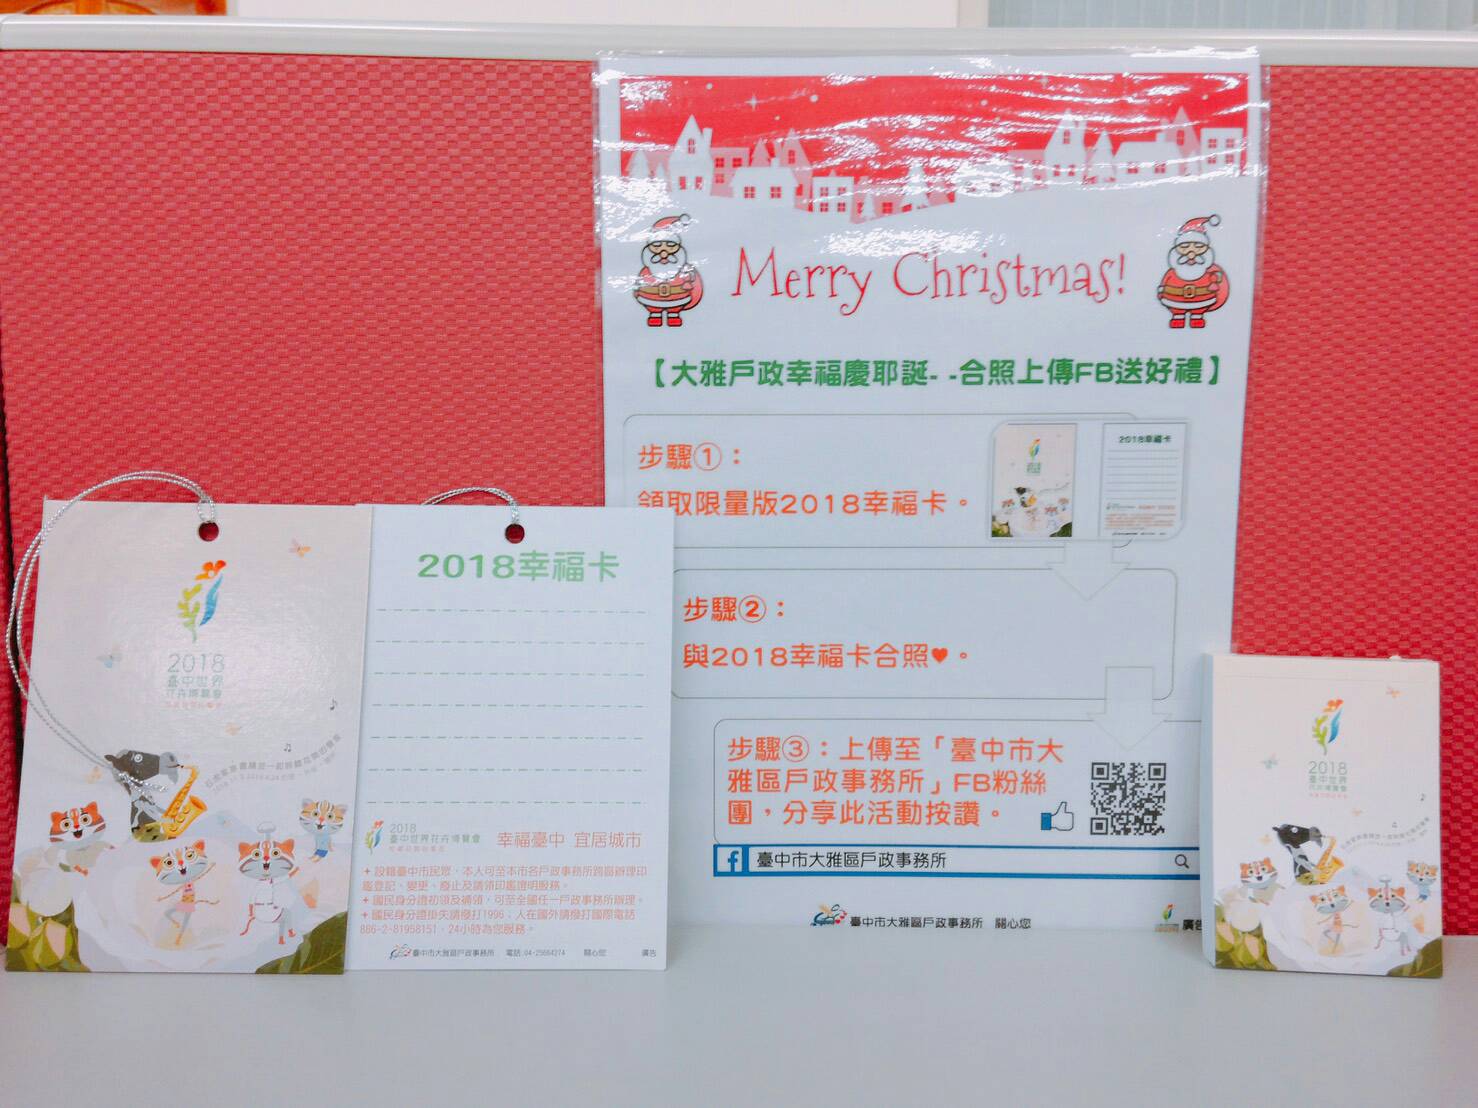 Merry Christmas!
【大雅戶政幸福慶耶誕- -合照上傳FB送好禮】
步驟①：
領取限量版2018幸福卡。
2018幸福卡
步驟②：
與2018幸福卡合照♥。
步驟③：上傳至「臺中市大
雅區戶政事務所」FB粉絲
團，分享此活動按讚。
f 臺中市大雅區戶政事務所
臺中市大雅區戶政事務所 關心您
廣告
2018
臺中世界
花卉博覽會
2018幸福卡
2018
臺中世界花卉博覽會
幸福臺中 宜居城市
+設籍臺中市民眾，本人可至本市各戶政事務所跨區辦理印
鑑登記、變更、廢止及請領印鑑證明服務。
+國民身分證初領及補領，可至全國任一戶政事務所辦理。
+國民身分證掛失請撥打1996；人在國外請撥打國際電話
886-2-81958151，24小時為您服務。
臺中市大雅區戶政事務所 電話:04-25664274 關心您 廣告
2018
臺中世界
花卉博覽會